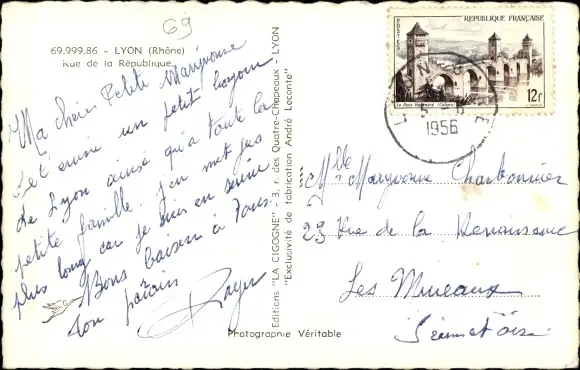 69
69.999.86 - LYON (Rhône)
Rue de la République
Ma chère Petite Maryvonne
Je t'envoie un petit bonjour
de Lyon ainsi qu'à toute la
petite famille. J'en met pas
plus long car je suis en
Bons baisers à Tous.
Ton parrain
Roger
Editions "LA CIGOGNE" - 3, r. des Quatre-Chapeaux, LYON
"Exclusivité de fabrication André Leconte"
Photographie Véritable
REPUBLIQUE FRANÇAISE
POSTES
Le Pont Valentré (Cahors)
12f
1956
Mlle Maryvonne Charbonnier
23 Rue de la Renaissance
Les Mureaux
Seine et Oise